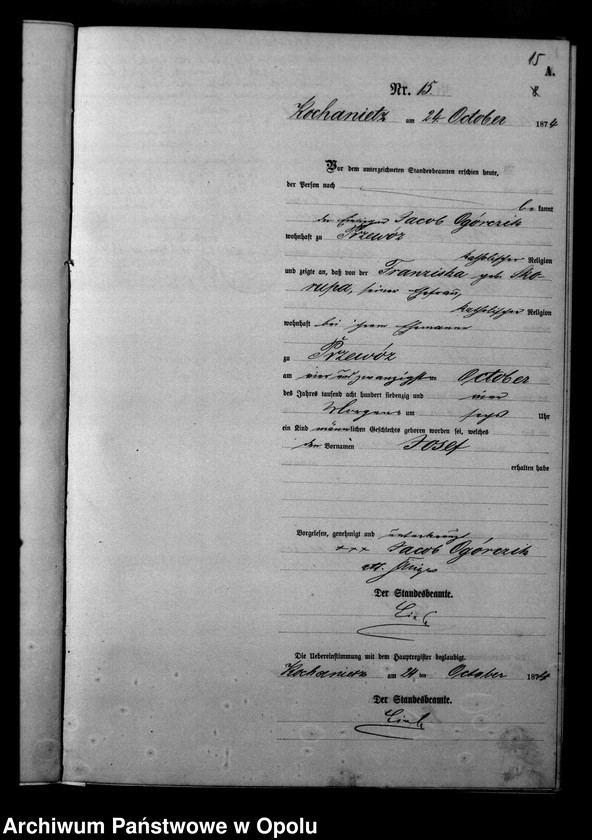 15
A.
Nr. 15.
Kochanietz am 24 October 1874
Vor dem unterzeichneten Standesbeamten erschien heute,
der Person nach
be kannt
der Jacob Ogórczik
wohnhaft zu Przewóz
katholischer Religion
und zeigte an, daß von der Franziska geb. Sko-
rupa, seiner Ehefrau,
katholischer Religion
wohnhaft bei ihrem Ehemanne
zu Przewóz
am vier und zwanzigsten October
des Jahres tausend acht hundert siebenzig und vier
Morgens um sechs Uhr
ein Kind männlichen Geschlechts geboren worden sei, welches
den Vornamen Josef
erhalten habe
Vorgelesen, genehmigt und unterkreuzt
+++ Jacob Ogórczik
Der Standesbeamte.
Die Uebereinstimmung mit dem Hauptregister beglaubigt.
Kochanietz am 24 ten October 1874
Der Standesbeamte.
Archiwum Państwowe w Opolu